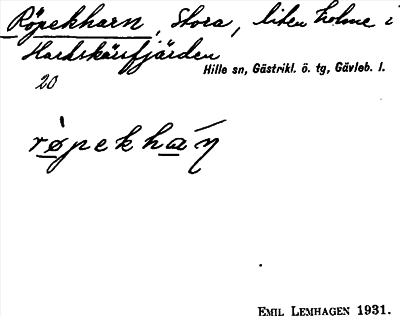 Röpekharn, Stora, liten holme i
Harkskärsfjärden
Hille sn, Gästrikl. ö. tg, Gävleb. l.
20
rø̀pekháɳ
EMIL LEMHAGEN 1931.